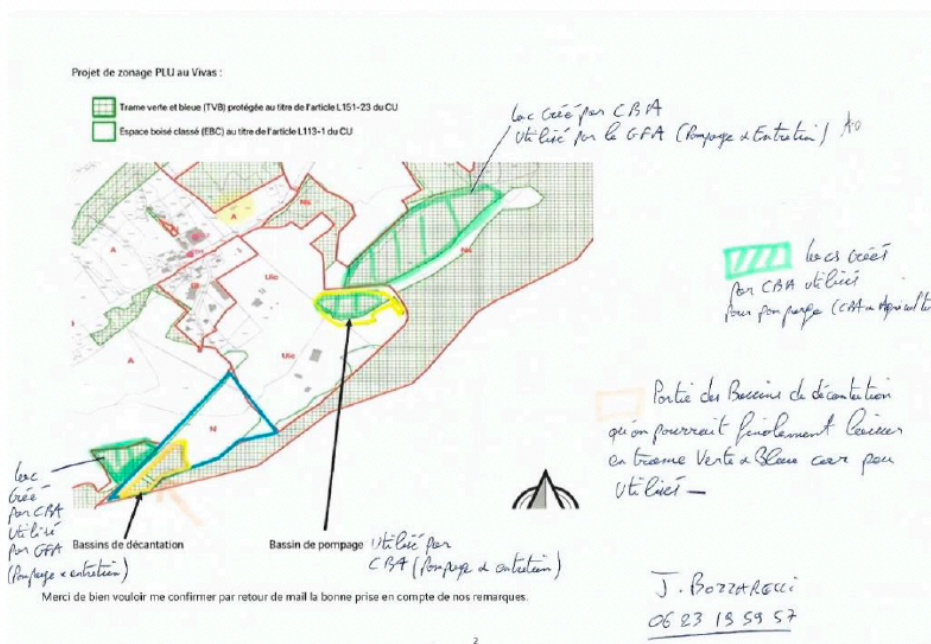 Projet de zonage PLU au Vivas :
Trame verte et bleue (TVB) protégée au titre de l'article L151-23 du CU
Espace boisé classé (EBC) au titre de l'article L113-1 du CU
lac créé par CBA
Utilisé par le GFA (Pompage & Entretien)
lacs créés
par CBA utilisés
pour pompage (CBA &
Partie des Bassins de décantation
qu'on pourrait finalement laisser
en trame Verte & Bleue car peu
utilisés
A
A
A
N
Uic
Uic
lac
créé
par CBA
utilisé
par GFA
(Pompage & entretien)
Bassins de décantation
Bassin de pompage
Utilisé par
CBA (Pompage & entretien)
Merci de bien vouloir me confirmer par retour de mail la bonne prise en compte de nos remarques.
J. BOZZARELLI
06 23 19 59 57
2